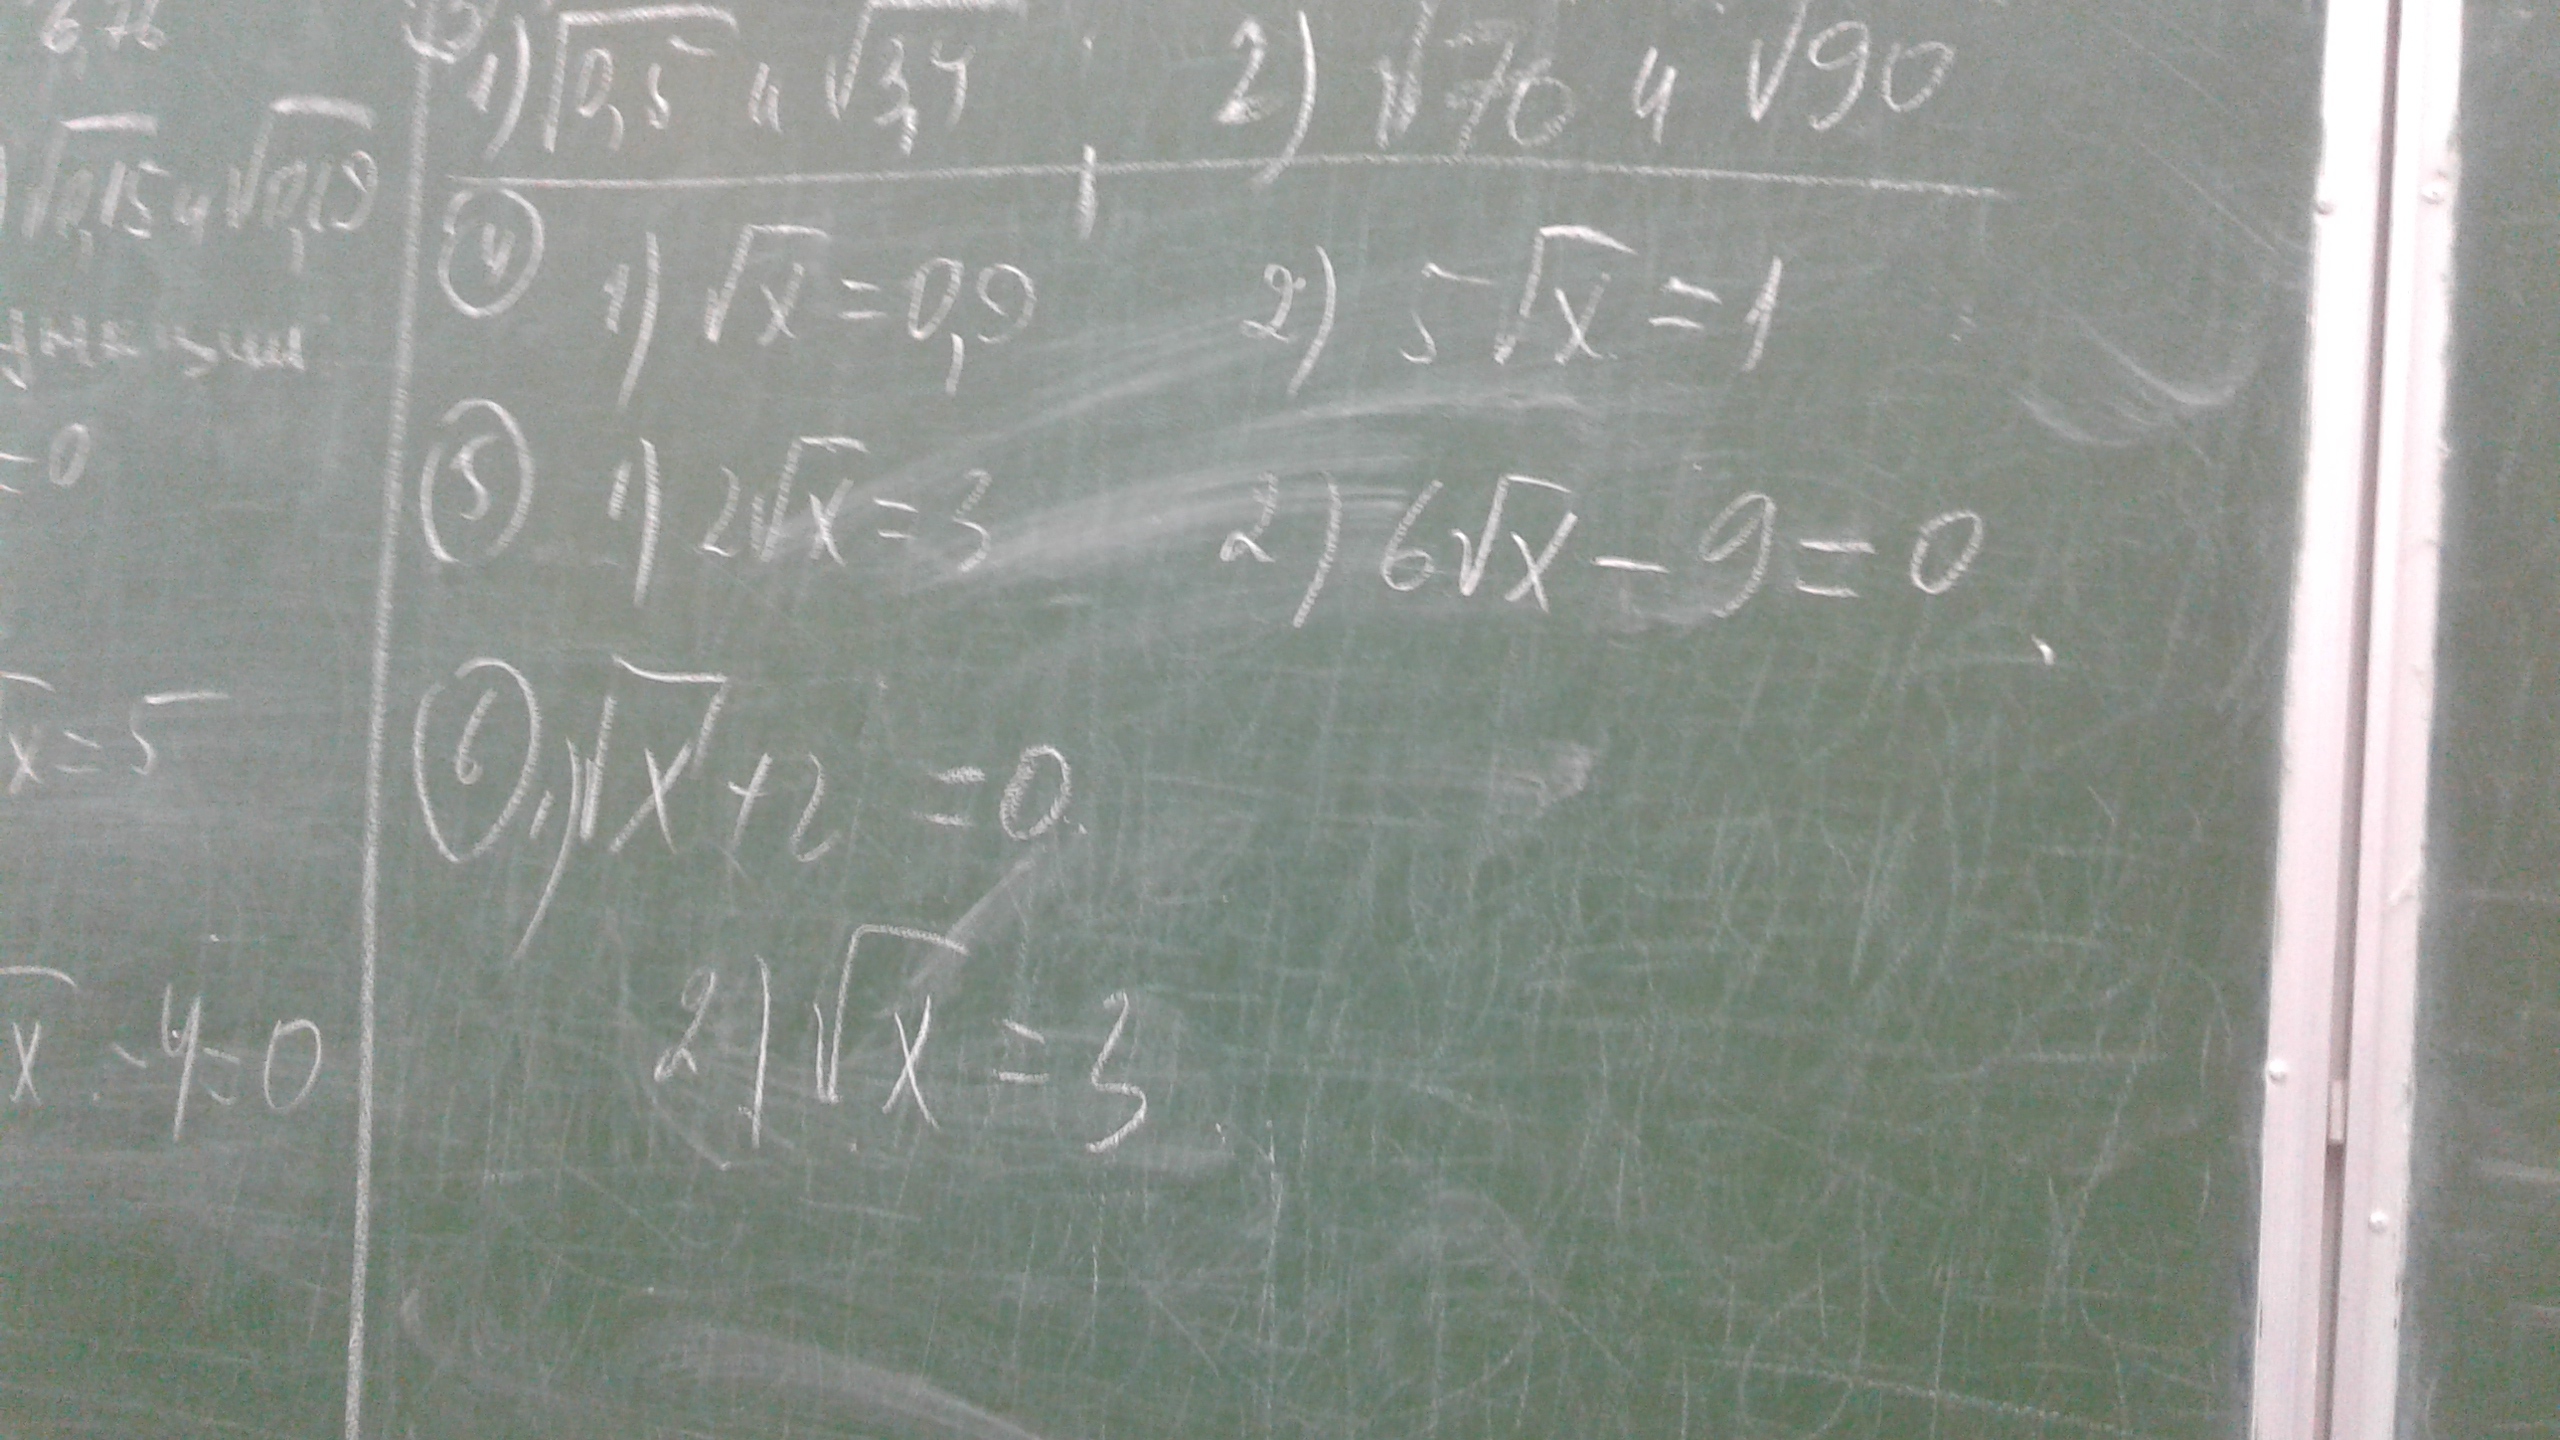 6,76
√0,15 и √0,19
=0
x = 5
x - 4 = 0
1) √0,5 и √3,4 ; 2) √70 и √90
4 1) √x = 0,9 2) 5√x = 1
5 1) 2√x = 3 2) 6√x - 9 = 0
6 1) √x + 2 = 0
2) √x = 3